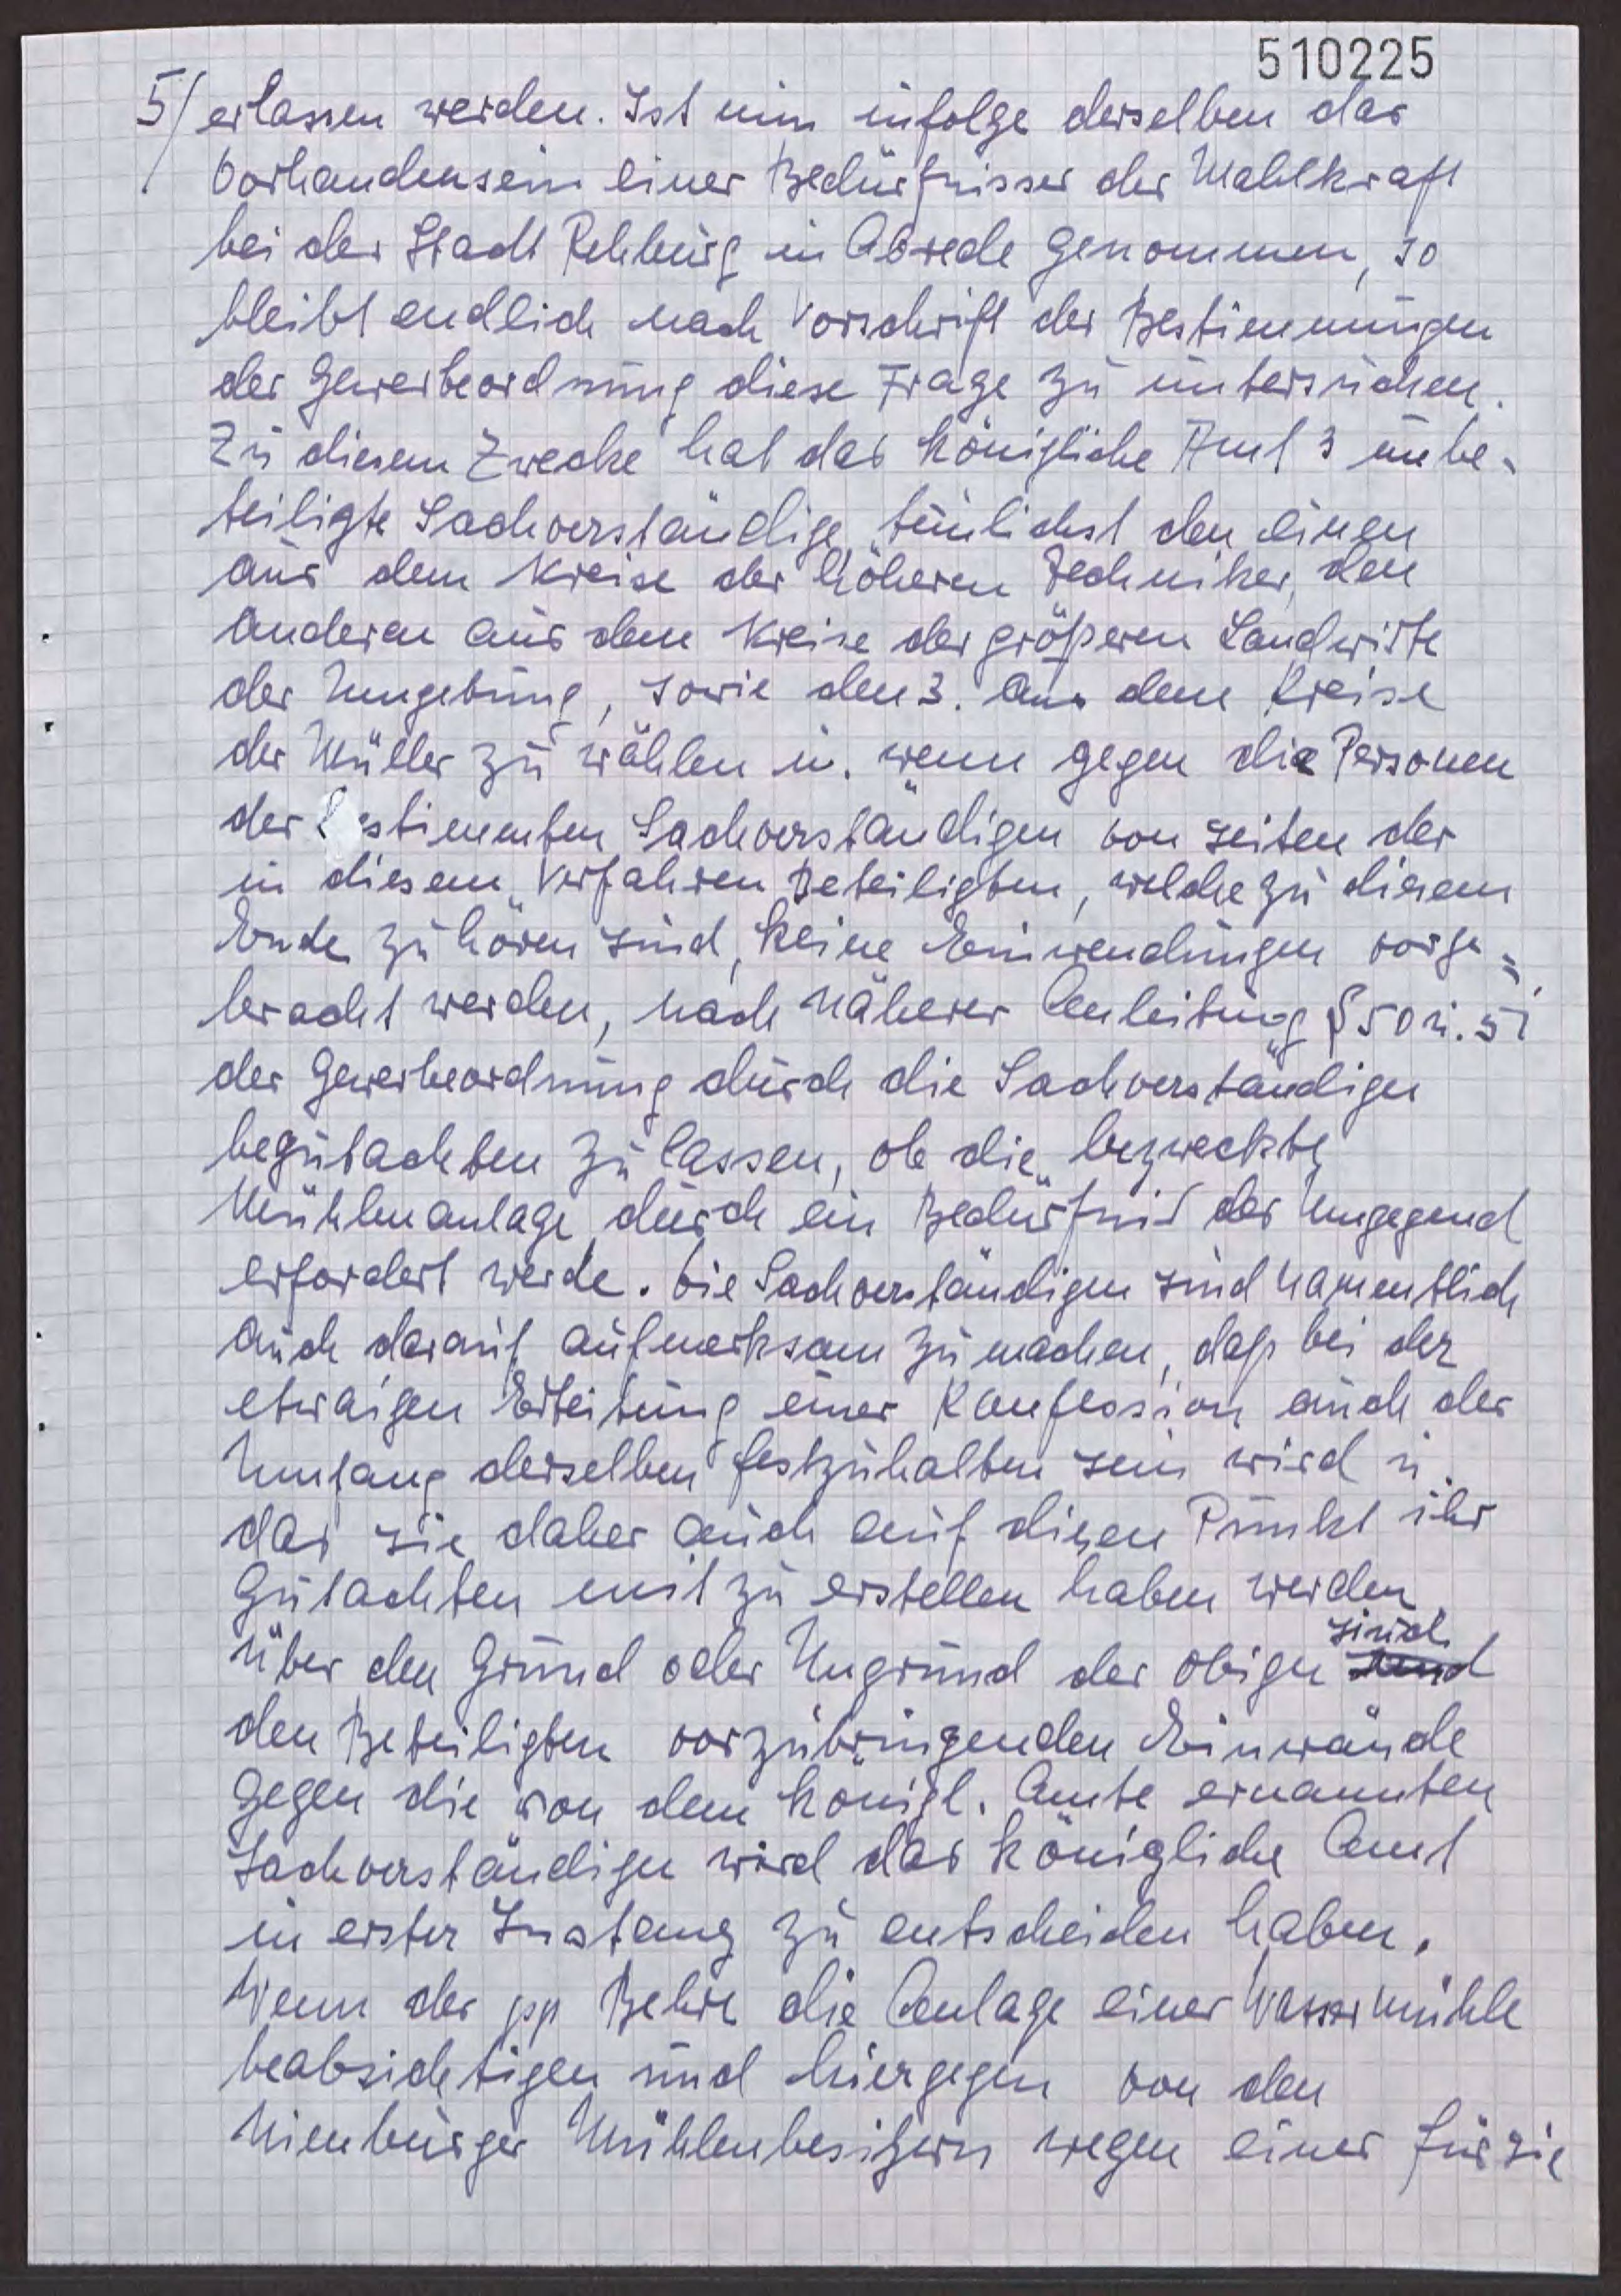 510225
5/ erlassen werden. Ist nun infolge derselben das
Vorhandensein einer Bedürfnisses der Mahlkraft
bei der Stadt Rehburg in Abrede genommen, so
bleibt endlich nach Vorschrift der Bestimmungen
der Gewerbeordnung diese Frage zu untersuchen.
Zu diesem Zwecke hat das Königliche Amt 3 unbe-
teiligte Sachverständige, tunlichst den einen
aus dem Kreise der höheren Techniker, den
anderen aus dem Kreise der größeren Landwirte
der Umgebung, sowie den 3. aus dem Kreise
der Müller zu wählen u. wenn gegen die Personen
der bestimmten Sachverständigen von seiten der
in diesem Verfahren Beteiligten, welche zu diesem
Ende zu hören sind, keine Einwendungen vorge=
bracht werden, nach näherer Anleitung § 50 u. 51
der Gewerbeordnung durch die Sachverständigen
begutachten zu lassen, ob die bezweckte
Mühlenanlage durch ein Bedürfnis der Umgegend
erfordert werde. Die Sachverständigen sind namentlich
auch darauf aufmerksam zu machen, daß bei der
etwaigen Erteitung einer Konfession auch der
Umfang derselben festzuhalten sein wird u.
das sie daher auch auf diesen Punkt ihr
Gutachten mit zu erstellen haben werden
Über den Grund oder Ungrund der obigen sind
den Beteiligten vorzubringenden Einwände
gegen die von dem Königl. Amte ernannten
Sachverständigen wird das Königliche Amt
in erster Instanz zu entscheiden haben.
Wenn der pp Behre die Anlage einer Wassermühle
beabsichtigen und hiergegen von den
Nienburger Mühlenbesitzern wegen einer für sie